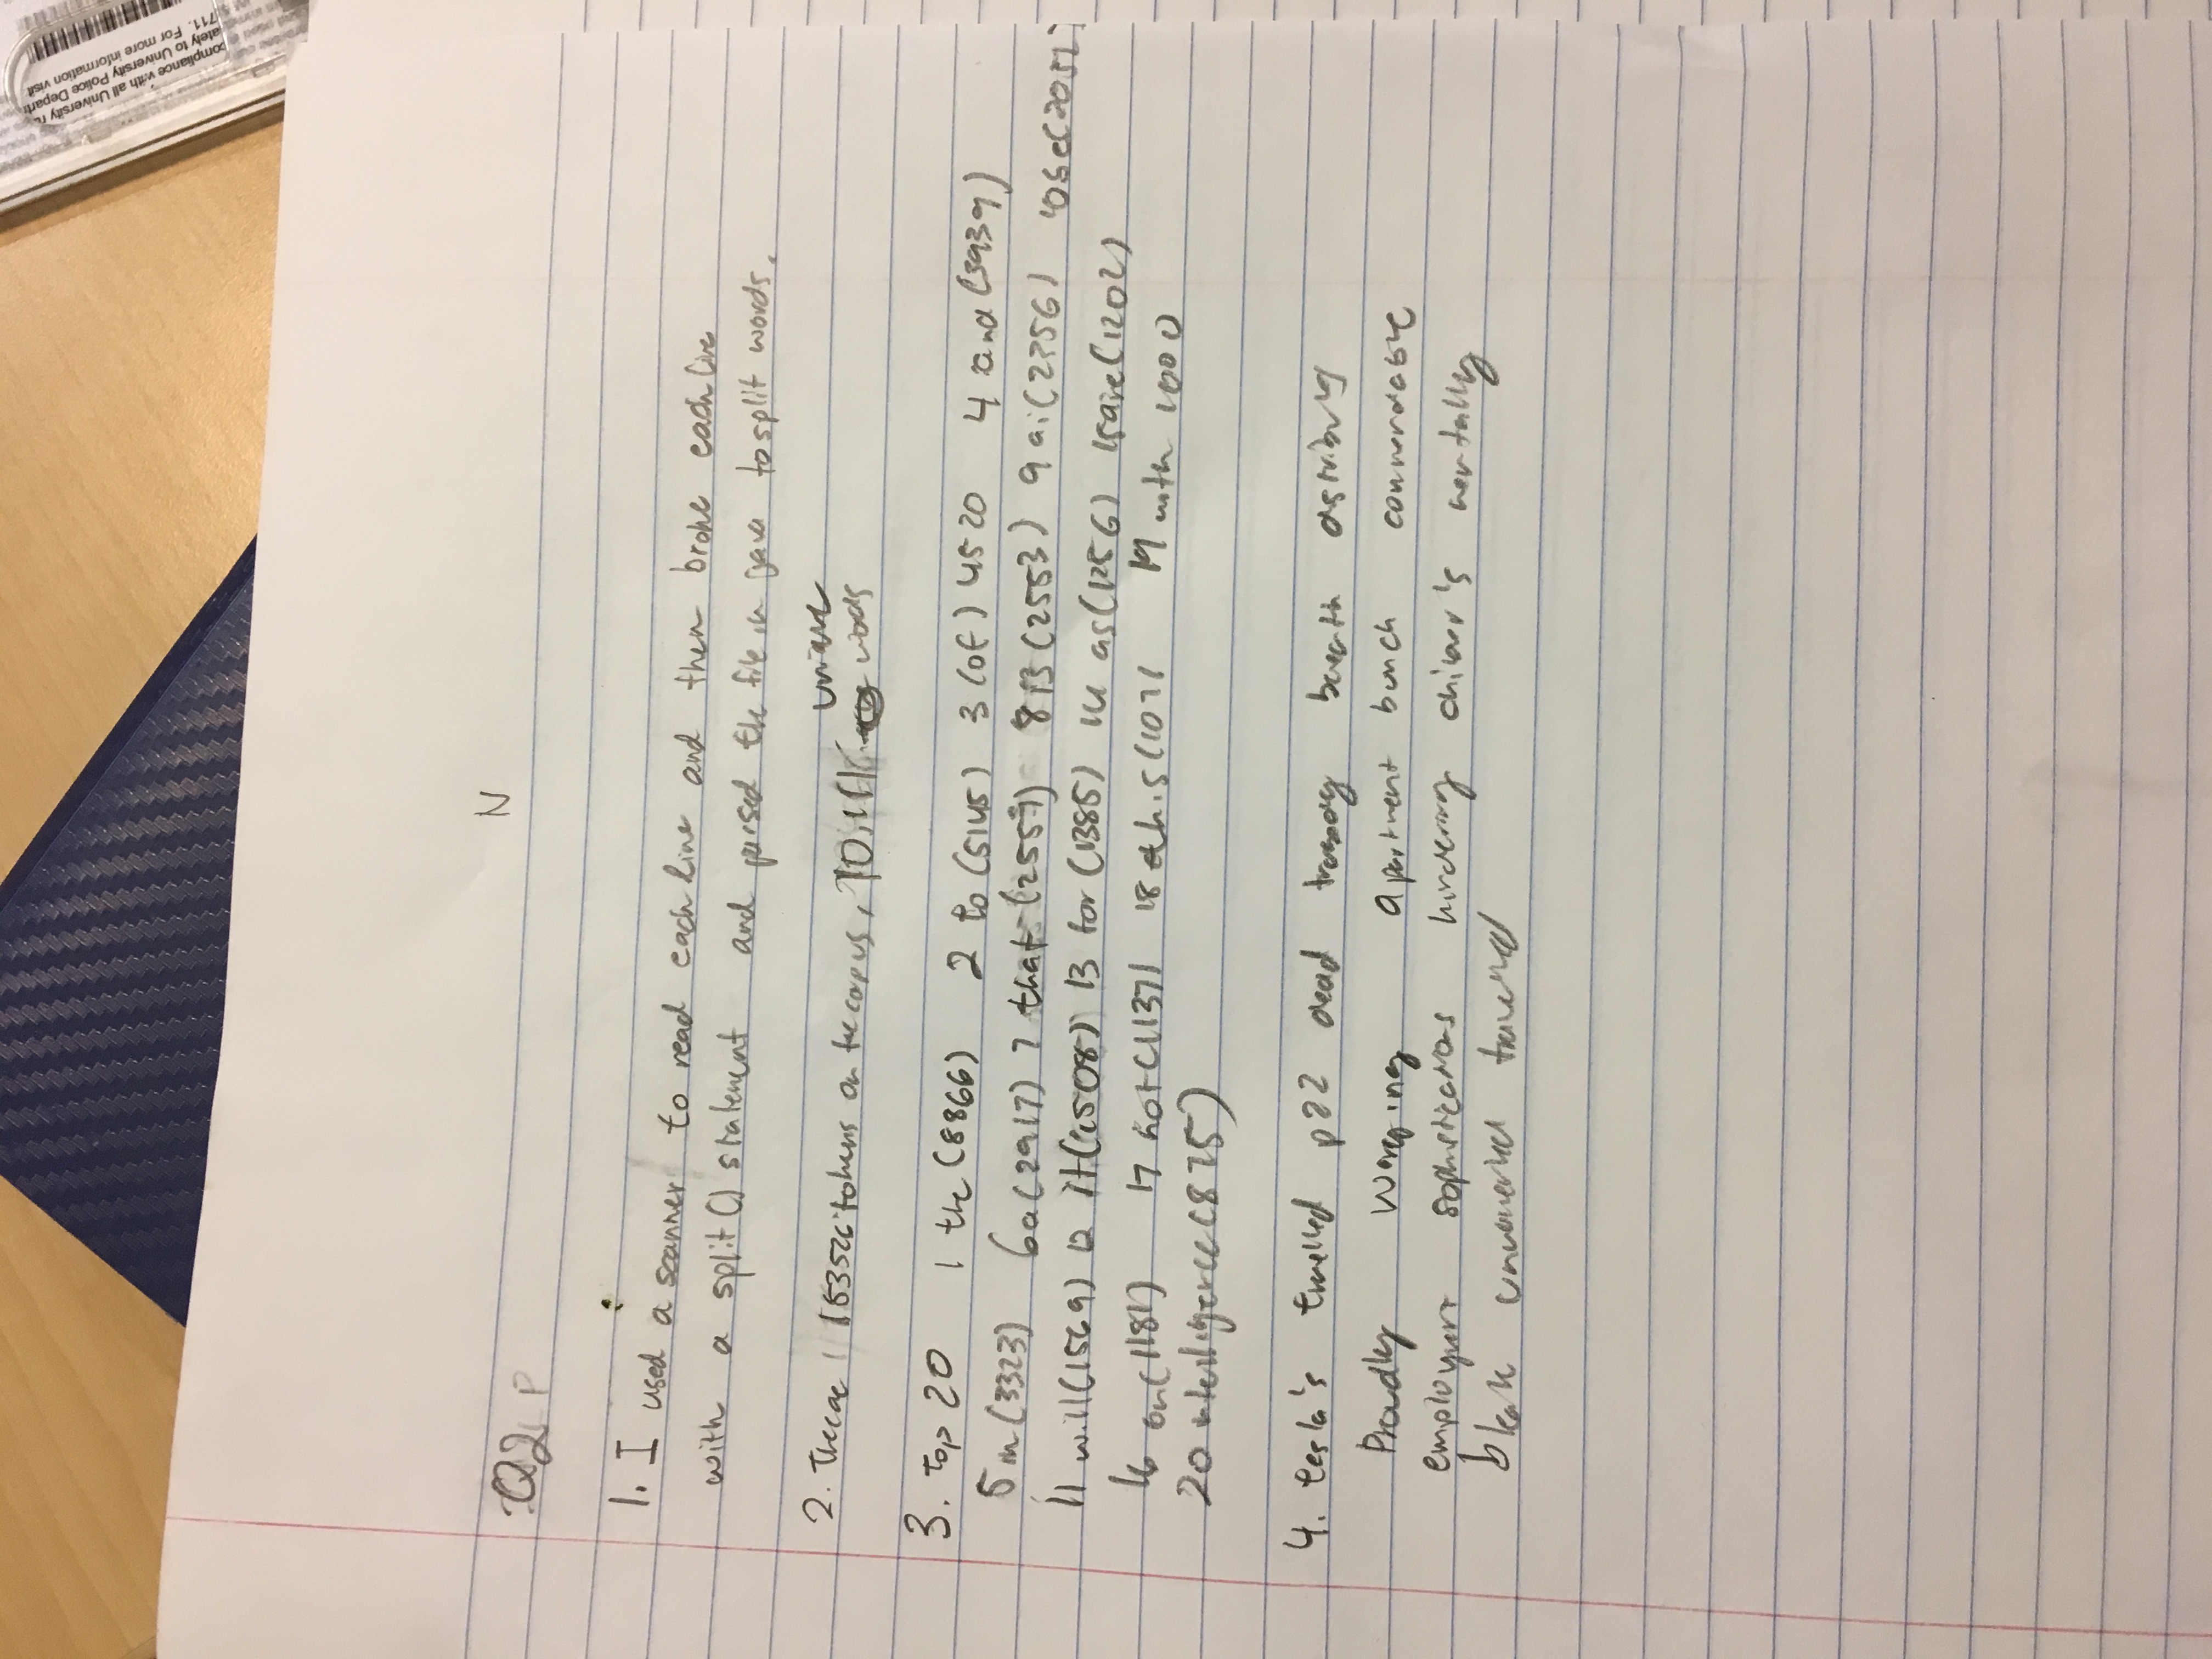 compliance with all University
ately to University Police Depart
711. For more information visit
N
Q2 P
1. I used a scanner to read each line and then broke each line
with a split() statement and parsed the file in java to split words.
unique
2. There are tokens on the corpus, words
3. top 20 1 the (8866) 2 to (5145) 3 (of) 4520 4 and (3939)
5 in (3323) 6 a (2917) 7 that (2557) 8 is (2553) 9 ai (2256) 10 be (2051)
11 will (1569) 12 it (1508) 13 for (1385) 14 as (1256) 15 are (1202)
16 on (1181) 17 not (1137) 18 this (1071 19 with 1000
20 intelligence (875)
4. tesla's travelled p22 dead tragedy breath
Proudly apartment bunch commendable
employment sophistications hindering mentally
bleak travelled